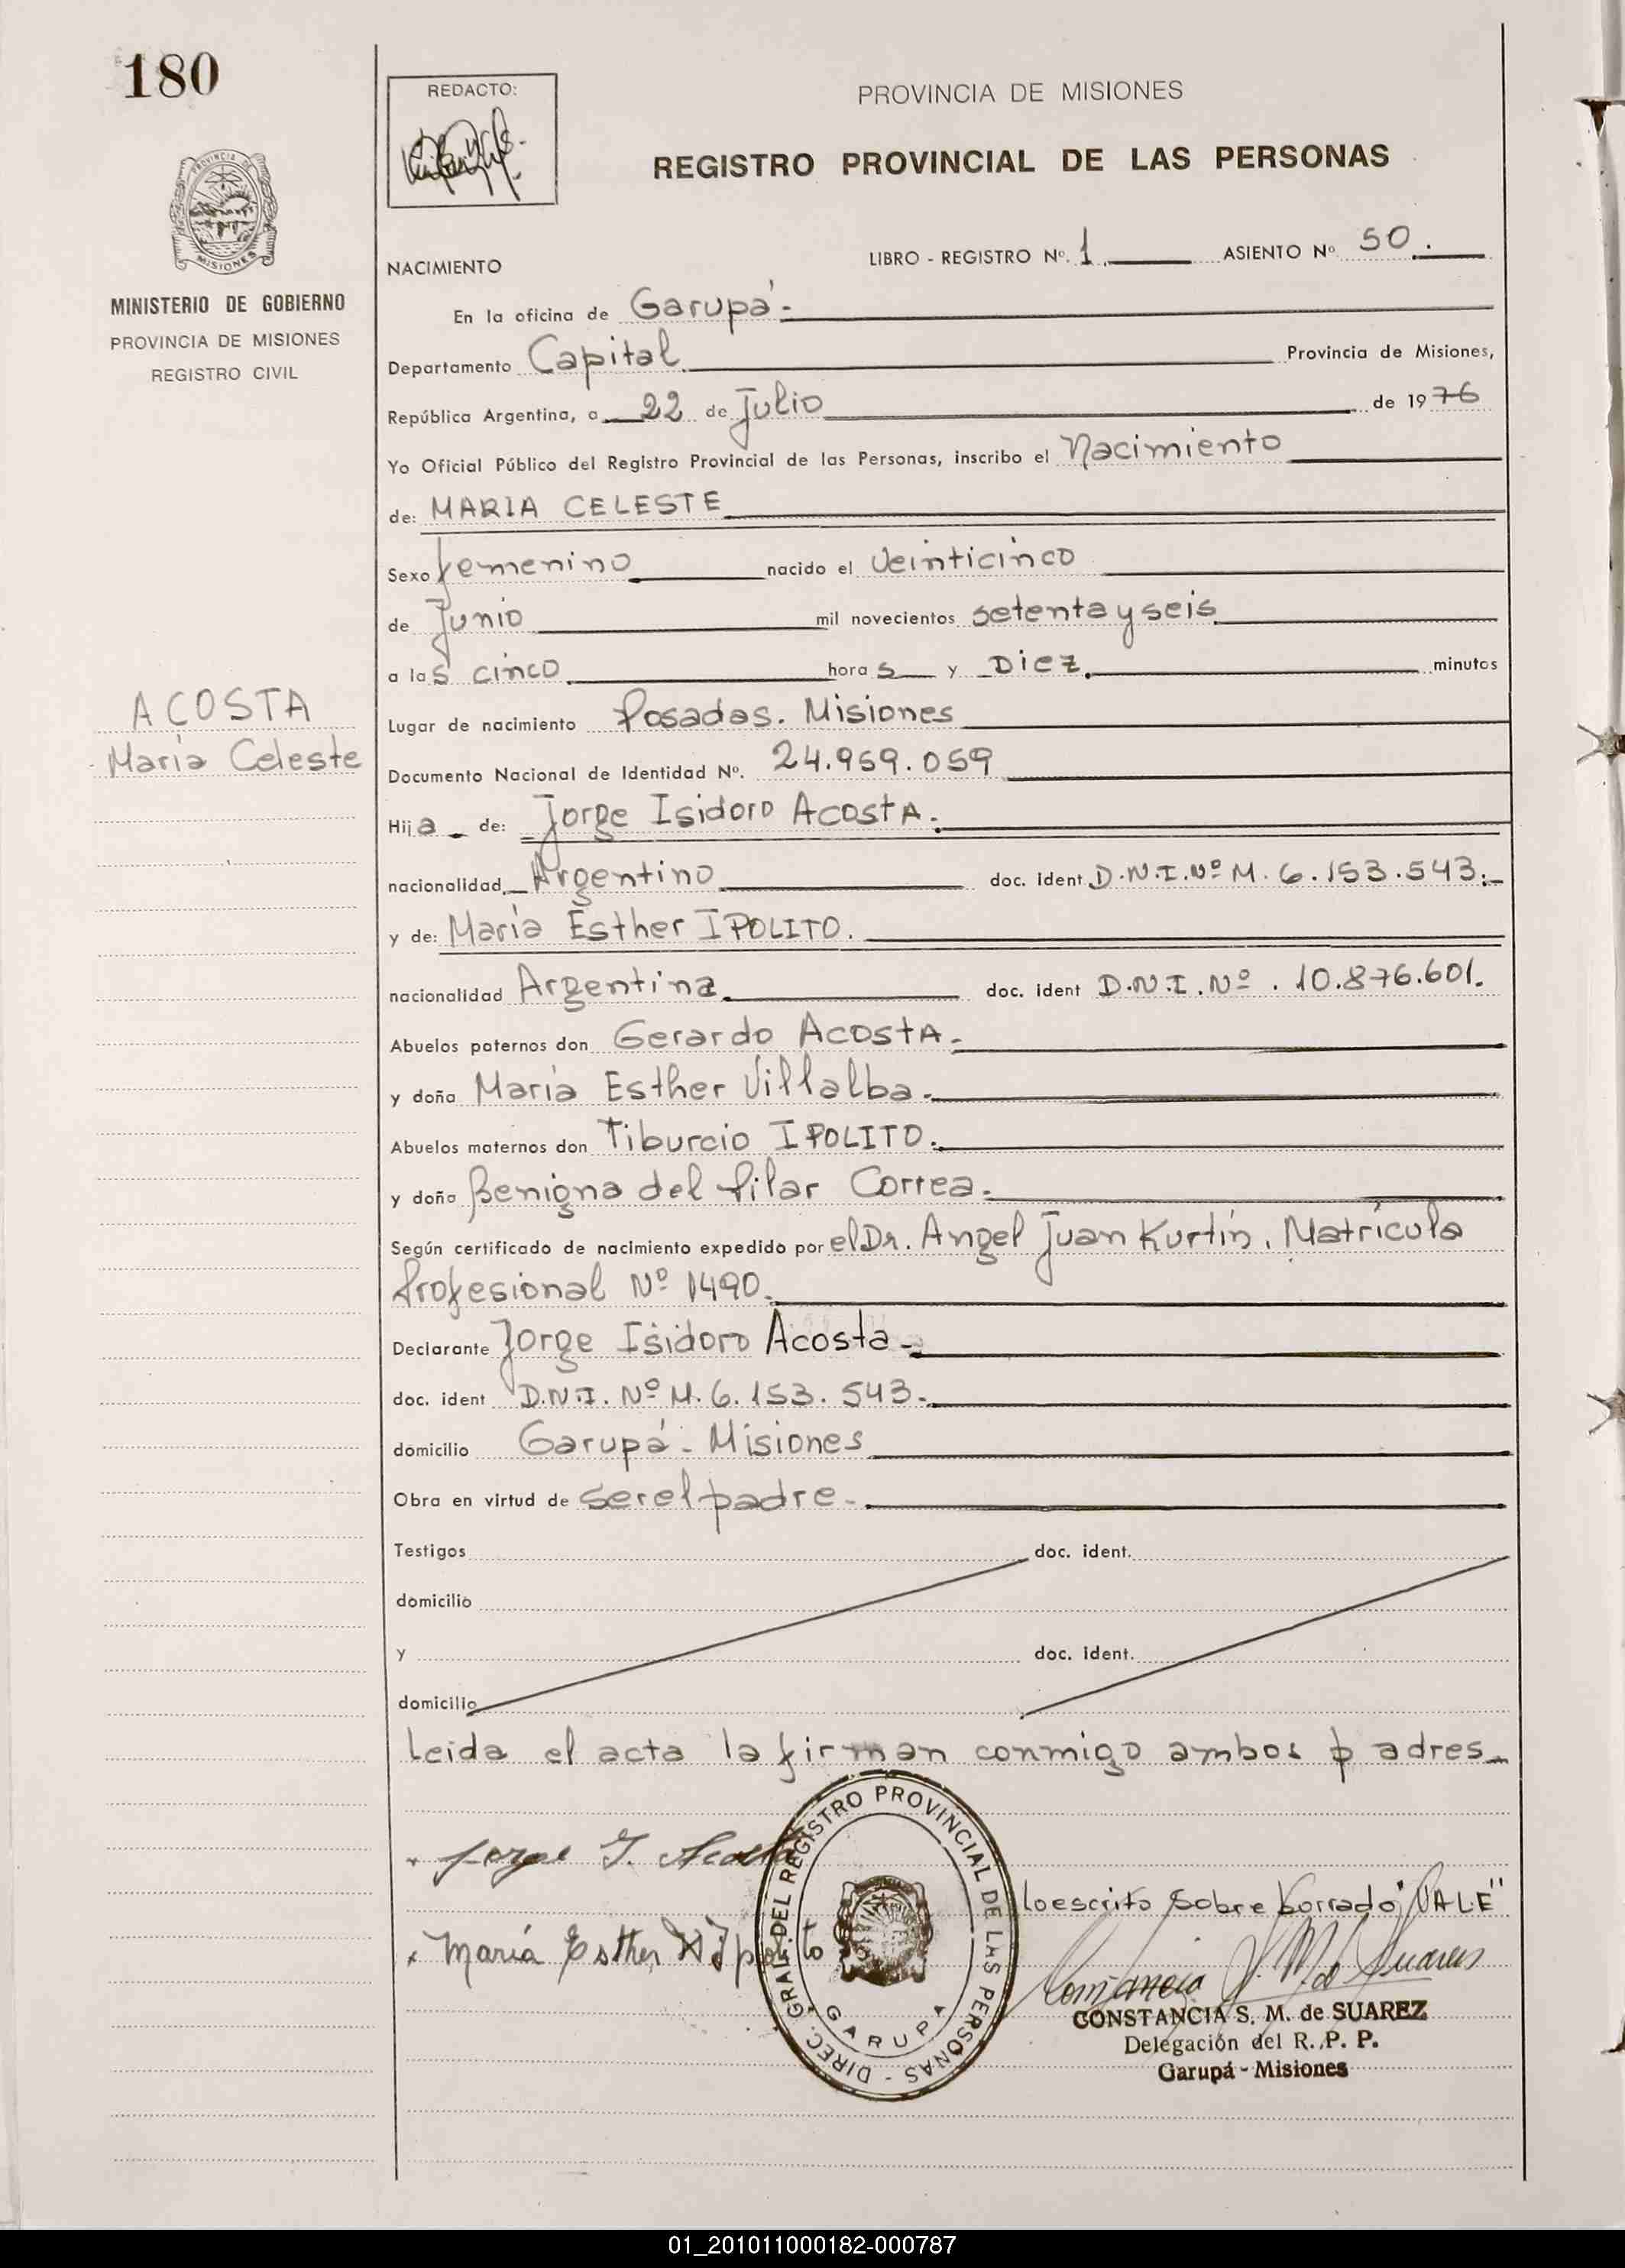 180
REDACTO:
PROVINCIA DE MISIONES
REGISTRO PROVINCIAL DE LAS PERSONAS
PROVINCIA DE
MISIONES
MINISTERIO DE GOBIERNO
PROVINCIA DE MISIONES
REGISTRO CIVIL
LIBRO - REGISTRO Nº. 1. ASIENTO Nº 50.
NACIMIENTO
En la oficina de Garupá.-
Departamento Capital Provincia de Misiones,
República Argentina, a 22 de Julio de 1976
Yo Oficial Público del Registro Provincial de las Personas, inscribo el Nacimiento
de: MARIA CELESTE
Sexo femenino nacido el Veinticinco
de Junio mil novecientos setenta y seis
a las cinco horas y Diez minutos
ACOSTA
María Celeste
Lugar de nacimiento Posadas. Misiones
Documento Nacional de Identidad Nº. 24.959.059
Hija de: Jorge Isidoro AcostA.
nacionalidad Argentino doc. ident D.N.I. Nº M. 6.153.543.-
y de: María Esther IPOLITO.
nacionalidad Argentina doc. ident D.N.I. Nº. 10.876.601.
Abuelos paternos don Gerardo AcostA.-
y doña María Esther Villalba.
Abuelos maternos don Tiburcio IPOLITO.
y doña Benigna del Pilar Correa.
Según certificado de nacimiento expedido por el Dr. Angel Juan Kurtin. Matrícula
Profesional Nº 1490.
Declarante Jorge Isidoro Acosta.-
doc. ident D.N.I. Nº M. 6.153.543.-
domicilio Garupá - Misiones
Obra en virtud de ser el padre.-
Testigos doc. ident.
domicilio
y doc. ident.
domicilio
Leida el acta la firman conmigo ambos padres
Jorge I. Acosta
lo escrito sobre borrado "VALE"
María Esther
DIREC. GRAL. DEL REGISTRO PROVINCIAL DE LAS PERSONAS -
GARUPA
CONSTANCIA S. M. de SUAREZ
Delegación del R. P. P.
Garupá - Misiones
01_201011000182-000787